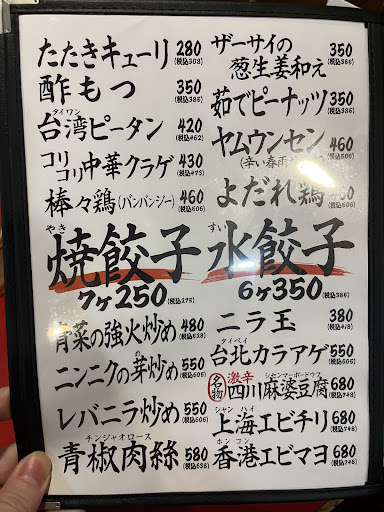 たたきキューリ 280 (税込308)
酢もつ 350 (税込385)
タイワン
台湾ピータン 420 (税込462)
コリコリ中華クラゲ 430 (税込473)
棒々鶏(バンバンジー) 460 (税込506)
やき
焼餃子
7ヶ250 (税込275)
青菜の強火炒め 480 (税込528)
ニンニクの芽炒め 550 (税込605)
レバニラ炒め 550 (税込605)
チンジャオロース
青椒肉絲 580 (税込638)
ザーサイの
葱生姜和え 350 (税込385)
茹でピーナッツ 350 (税込385)
ヤムウンセン 460 (税込506)
(辛い春雨
よだれ鶏 460
すい
水餃子
6ヶ350 (税込385)
ニラ玉 380 (税込418)
タイペイ
台北カラアゲ 550 (税込605)
名物 激辛
シセンマーボードウフ
四川麻婆豆腐 680 (税込748)
シャンハイ
上海エビチリ 680 (税込748)
ホンコン
香港エビマヨ 680 (税込748)